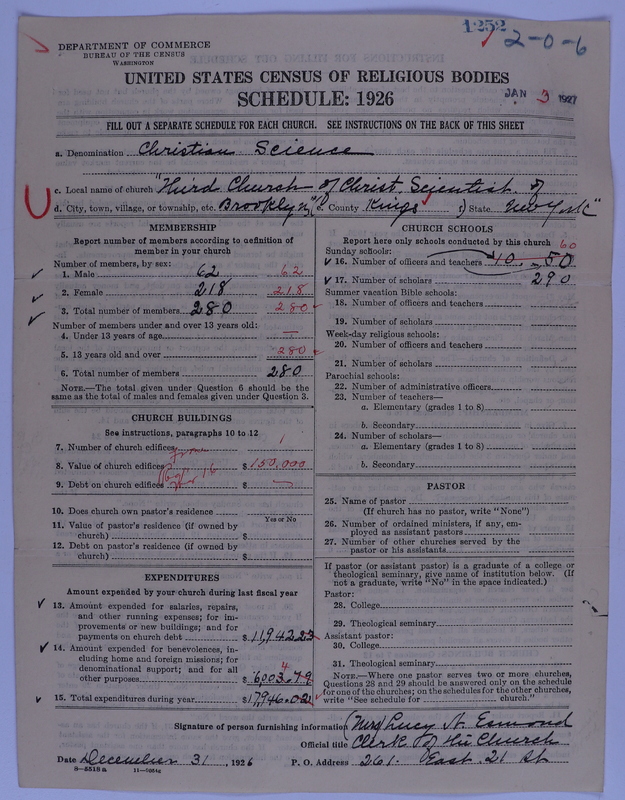 1252
2-0-6
DEPARTMENT OF COMMERCE
BUREAU OF THE CENSUS
WASHINGTON
UNITED STATES CENSUS OF RELIGIOUS BODIES
SCHEDULE: 1926
JAN 3 1927
FILL OUT A SEPARATE SCHEDULE FOR EACH CHURCH. SEE INSTRUCTIONS ON THE BACK OF THIS SHEET
a. Denomination Christian Science
c. Local name of church "Third Church of Christ, Scientist, of
d. City, town, village, or township, etc. Brooklyn, e. County Kings f) State New York"
MEMBERSHIP
Report number of members according to definition of
member in your church
Number of members, by sex:
1. Male 62 62
2. Female 218 218
3. Total number of members 280 280
Number of members under and over 13 years old:
4. Under 13 years of age —
5. 13 years old and over 280
6. Total number of members 280
NOTE.—The total given under Question 6 should be the
same as the total of males and females given under Question 3.
CHURCH BUILDINGS
See instructions, paragraphs 10 to 12
7. Number of church edifices 1
8. Value of church edifices $150,000
9. Debt on church edifices $
10. Does church own pastor's residence
Yes or No
11. Value of pastor's residence (if owned by
church) $
12. Debt on pastor's residence (if owned by
church) $
EXPENDITURES
Amount expended by your church during last fiscal year
13. Amount expended for salaries, repairs,
and other running expenses; for im-
provements or new buildings; and for
payments on church debt $11,942.23
14. Amount expended for benevolences, in-
cluding home and foreign missions; for
denominational support; and for all
other purposes $6003.79
4
15. Total expenditures during year $17,946.02
CHURCH SCHOOLS
Report here only schools conducted by this church
60
Sunday schools:
16. Number of officers and teachers 10 - 50
17. Number of scholars 290
Summer vacation Bible schools:
18. Number of officers and teachers
19. Number of scholars
Week-day religious schools:
20. Number of officers and teachers
21. Number of scholars
Parochial schools:
22. Number of administrative officers
23. Number of teachers—
a. Elementary (grades 1 to 8)
b. Secondary
24. Number of scholars—
a. Elementary (grades 1 to 8)
b. Secondary
PASTOR
25. Name of pastor
(If church has no pastor, write "None")
26. Number of ordained ministers, if any, em-
ployed as assistant pastors
27. Number of other churches served by the
pastor or his assistants
If pastor (or assistant pastor) is a graduate of a college or
theological seminary, give name of institution below. (If
not a graduate, write "No" in the space indicated.)
Pastor:
28. College
29. Theological seminary
Assistant pastor:
30. College
31. Theological seminary
NOTE.—Where one pastor serves two or more churches,
Questions 28 and 29 should be answered only on the schedule
for one of the churches; on the schedules for the other churches,
write "See schedule for church."
Signature of person furnishing information (Mrs) Lucy N. Esmond
Official title Clerk of the Church
Date December 31, 1926 P. O. Address 261 East 21 St
8-5518a 11-9064g